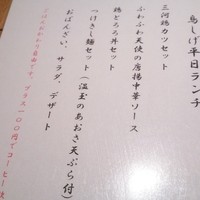 鳥しげ平日ランチ
三河鶏カツセット
ふわふわ天使の唐揚中華ソース
鶏とろろ丼セット
つけきし麺セット（温玉のあおさ天ぷら付）
おばんざい、サラダ、デザート
おかわり自由です。プラス一〇〇円でコーヒー